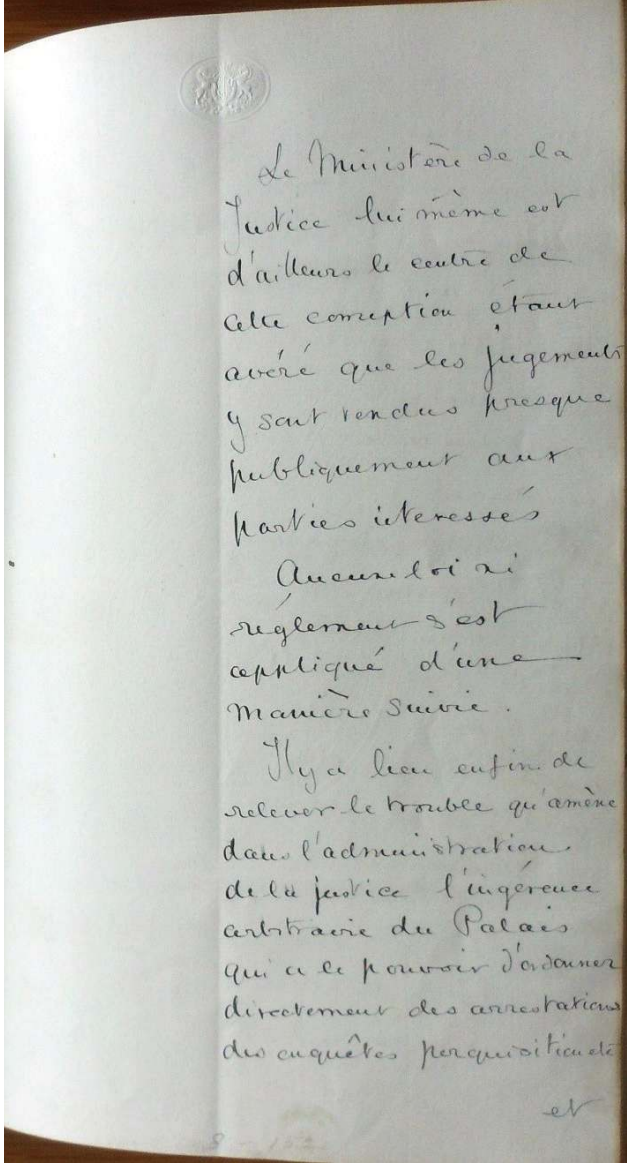 Le Ministère de la
Justice lui même est
d'ailleurs le centre de
cette corruption étant
avéré que les jugements
y sont rendus presque
publiquement aux
parties interessés
Aucune loi ni
réglement s'est
appliqué d'une
manière suivie.
Il y a lieu enfin de
relever le trouble qu'amène
dans l'administration
de la justice l'ingérence
arbitraire du Palais
qui a le pouvoir d'ordonner
directement des arrestations
des enquêtes perquisition etc
et